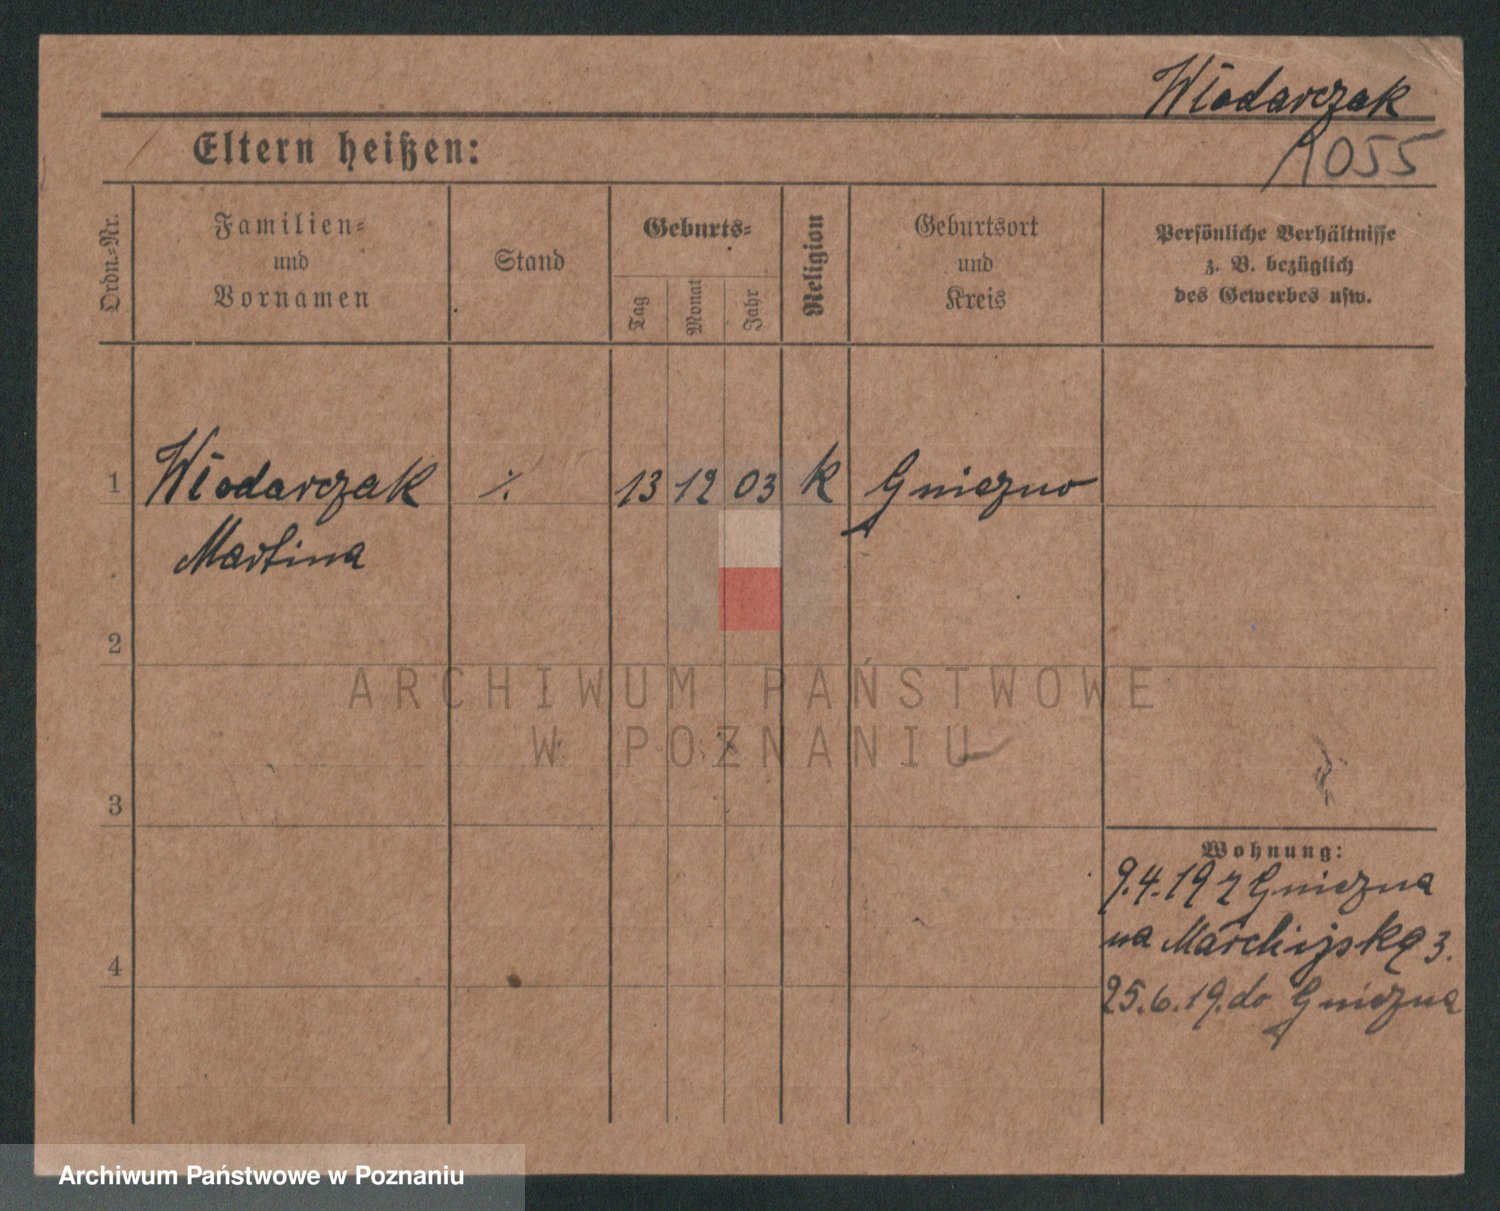 Włodarczak
1055
Eltern heißen:
Ordn.-Nr.
Familien-
und
Vornamen
Stand
Geburts-
Tag
Monat
Jahr
Religion
Geburtsort
und
Kreis
Persönliche Verhältnisse
z. B. bezüglich
des Gewerbes usw.
1 Włodarczak ./. 13 12 03 k Gniezno
Martina
2
ARCHIWUM PAŃSTWOWE
W POZNANIU
3
Wohnung:
9.4.19 z Gniezna
na 3.
4
25.6.19. do Gniezna
Archiwum Państwowe w Poznaniu